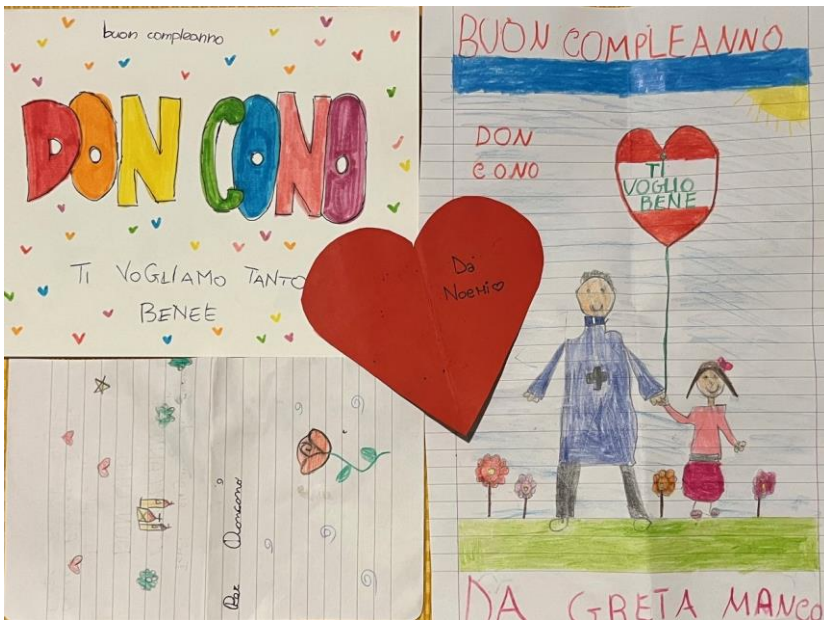 buon compleanno
DON CONO
TI VOGLIAMO TANTO
BENEE
Da
Noemi
BUON COMPLEANNO
DON
CONO
TI
VOGLIO
BENE
DA GRETA MANCO
Per Doncono